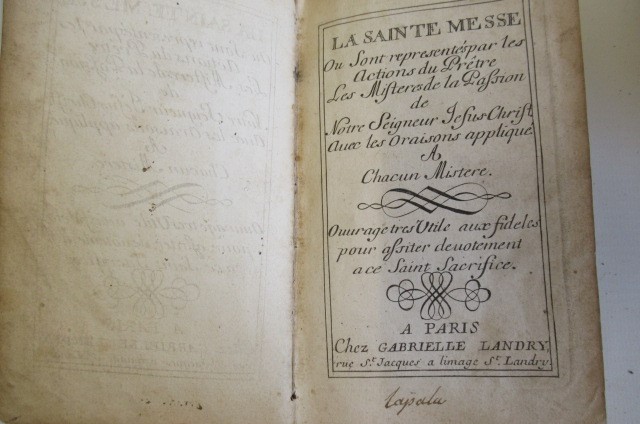 LA SAINTE MESSE
Ou Sont representés par les
Actions du Prêtre
Les Misteres de la Passion
de
Notre Seigneur Jesus-Christ
Avec les Oraisons appliqué
A
Chacun Mistere.
Ouvrage tres Utile aux fideles
pour assiter devotement
a ce Saint Sacrifice.
A PARIS
Chez GABRIELLE LANDRY
rue St. Jacques a limage St. Landry.